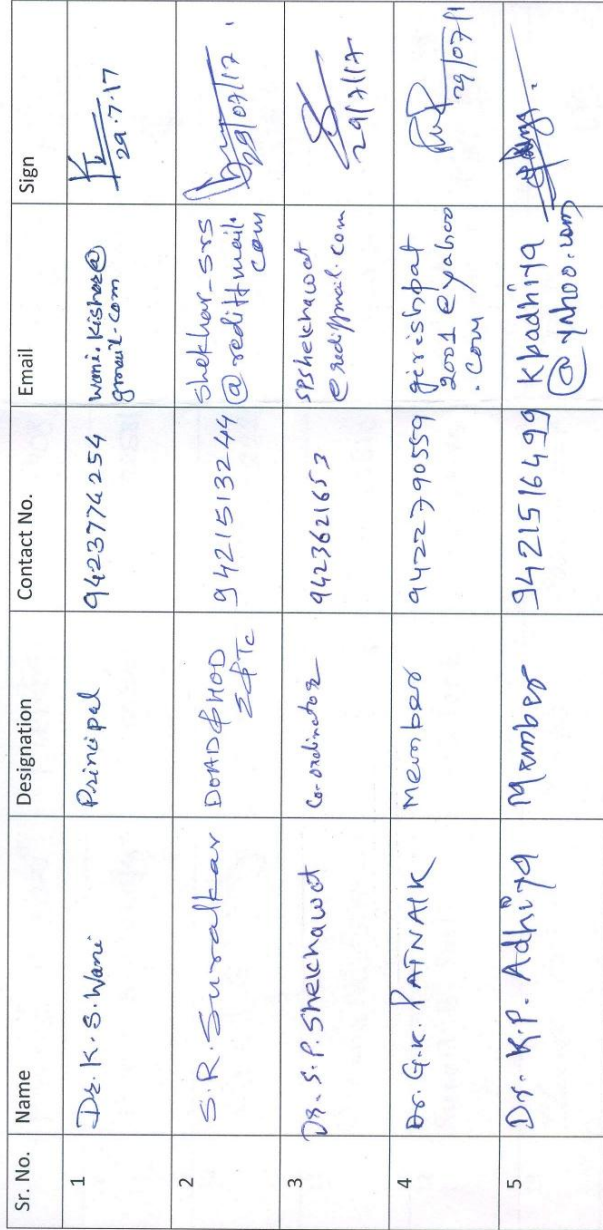 Sr. No. Name Designation Contact No. Email Sign
1 Dr. K. S. Wani Principal 9423774254 wani.kishor@
gmail.com
29.7.17
2 S.R. Suralkar DOAD & HOD
E&TC
9421513244 shekhar_srs
@rediffmail.
com
29/07/17.
3 Dr. S.P. Shekhawat Co-ordinator 9423621653 spshekhawat
@rediffmail.com
29/7/17
4 Dr. G.K. PATNAIK Member 9422790559 girishpat
2001@yahoo
.com
29/07/1
5 Dr. K.P. Adhiya Member 9421516499 kpadhiya
@yahoo.com